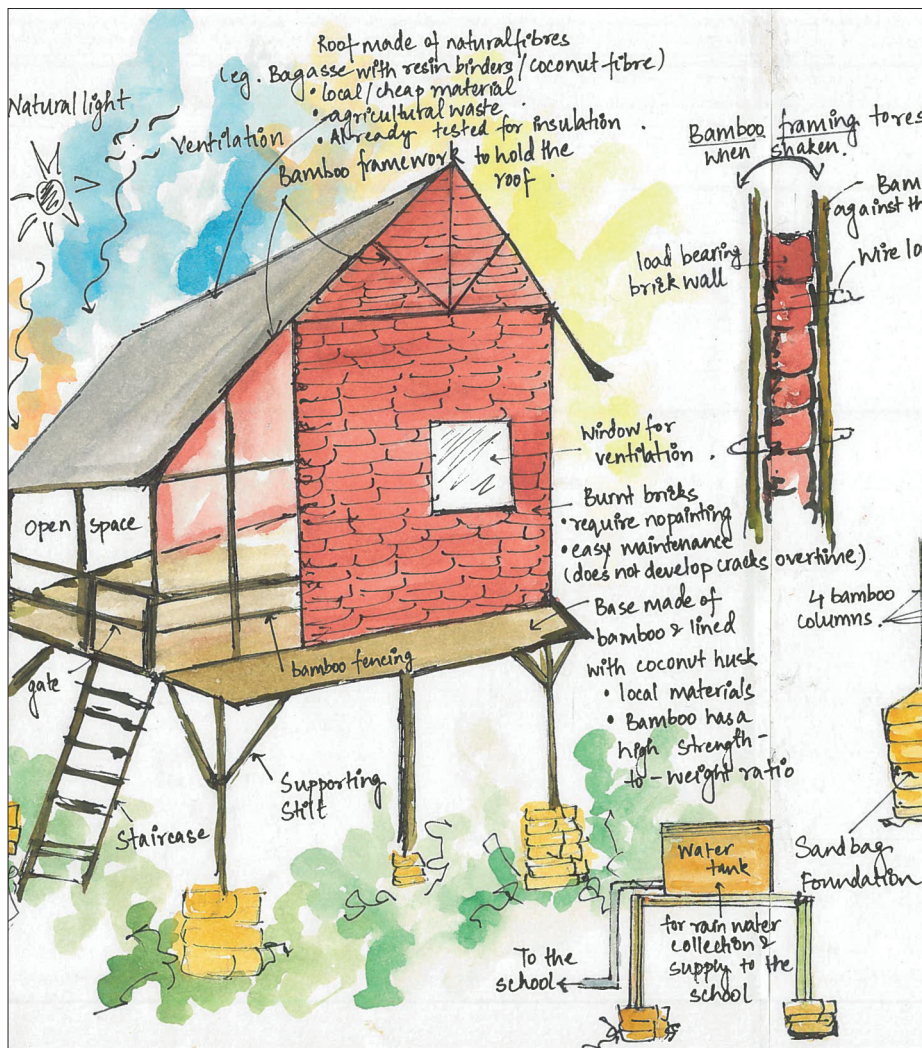 Roof made of natural fibres
(eg. Bagasse with resin binders / coconut fibre)
• local / cheap material
• agricultural waste
• Already tested for insulation
Bamboo framework to hold the
roof.
Natural light
Ventilation
Bamboo framing to
when shaken.
against
load bearing
brick wall
Wire
Window for
ventilation.
Burnt bricks
• require no painting
• easy maintenance
(does not develop cracks overtime)
open space
Base made of
bamboo & lined
with coconut husk
• local materials
• Bamboo has a
high strength-
to-weight ratio
4 bamboo
columns.
gate
bamboo fencing
Supporting
stilt
Staircase
Water
tank
for rain water
collection &
supply to the
school
To the
school
Sandbag
Foundation